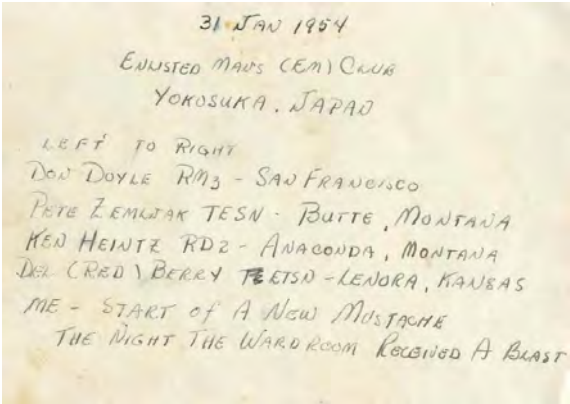 31 JAN 1954
ENLISTED MAN'S (EM) CLUB
YOKOSUKA, JAPAN
LEFT TO RIGHT
DON DOYLE RM3 - SAN FRANCISCO
PETE ZEMLJAK TESN - BUTTE, MONTANA
KEN HEINTZ RD2 - ANACONDA, MONTANA
DEL (RED) BERRY ETSN - LENORA, KANSAS
ME - START OF A NEW MUSTACHE
THE NIGHT THE WARDROOM RECEIVED A BLAST